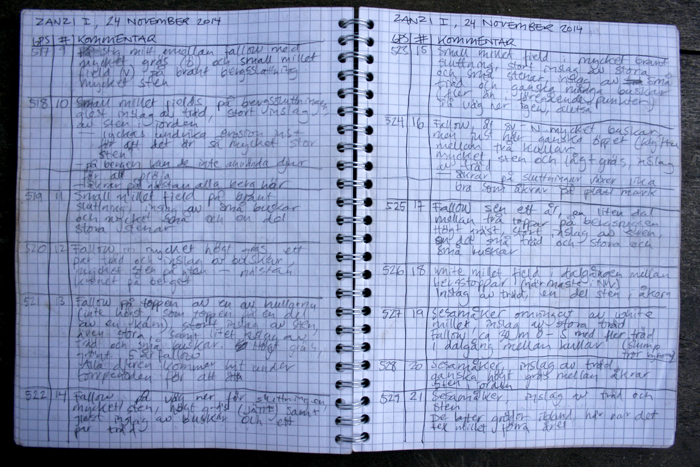 ZANZI I, 24 NOVEMBER 2014
GPS # KOMMENTAR
517 9 mitt emellan fallow med
mycket gräs (Ö) och small millet
field (V) på brant bergssluttning
mycket sten
518 10 Small millet fields, på bergssluttningen
glest inslag av träd, stort inslag
av sten i jorden
lyckas undvika erosion just
för att det är så mycket stor
sten
- på bergen kan de inte använda djur
för att plöja
- åkrar på nästan alla berg här
519 11 Small millet field på brant
sluttning, inslag av små buskar
och mycket små och en del
stora stenar
520 12 Fallow m mycket högt gräs, ett
par träd och inslag av buskar
mycket sten på ytan - nästan
krönet på berget
521 13 Fallow på toppen av en av kullarna
(inte högst, som toppen på en del
av en), stort inslag av sten,
även stora, samt litet inslag av
träd och små buskar. Högt gräs,
fallow
Alla djuren kommer hit under
torrperioden för att
522 14 Fallow, på väg ner för sluttningen,
mycket sten, högt gräs samt
glest inslag av buskar och ett
par träd
ZANZI I, 24 NOVEMBER 2014
GPS # KOMMENTAR
523 15 Small millet field, mycket brant
sluttning, stort inslag av stora
och små stenar, inslag av små
träd och ganska många buskar
(fler än föregående punkter)
på väg ner igen, alltså
524 16 Fallow, mycket buskar,
men just här ganska öppet
mellan två kullar
mycket sten och lågt gräs, inslag
av träd
åkrar på sluttningar är lika
bra som åkrar på plan mark
525 17 Fallow sen ett år, en liten dal
mellan två toppar på bergsryggen
Högt gräs, stort inslag av sten,
en del små träd och stora och
små buskar
526 18 White millet field i dalgången mellan
bergstoppar
Inslag av träd, en del sten i åkern
527 19 Sesamåker omringat av white
millet, inslag av stora träd
fallow ca 30 m S med fler träd
i dalgång mellan kullar
528 20 Sesamåker, inslag av träd,
ganska högt gräs mellan åkrar
sten i jorden
529 21 Sesamåker, inslag av träd och
sten
De byter grödor ibland, här var det
tex millet förra året